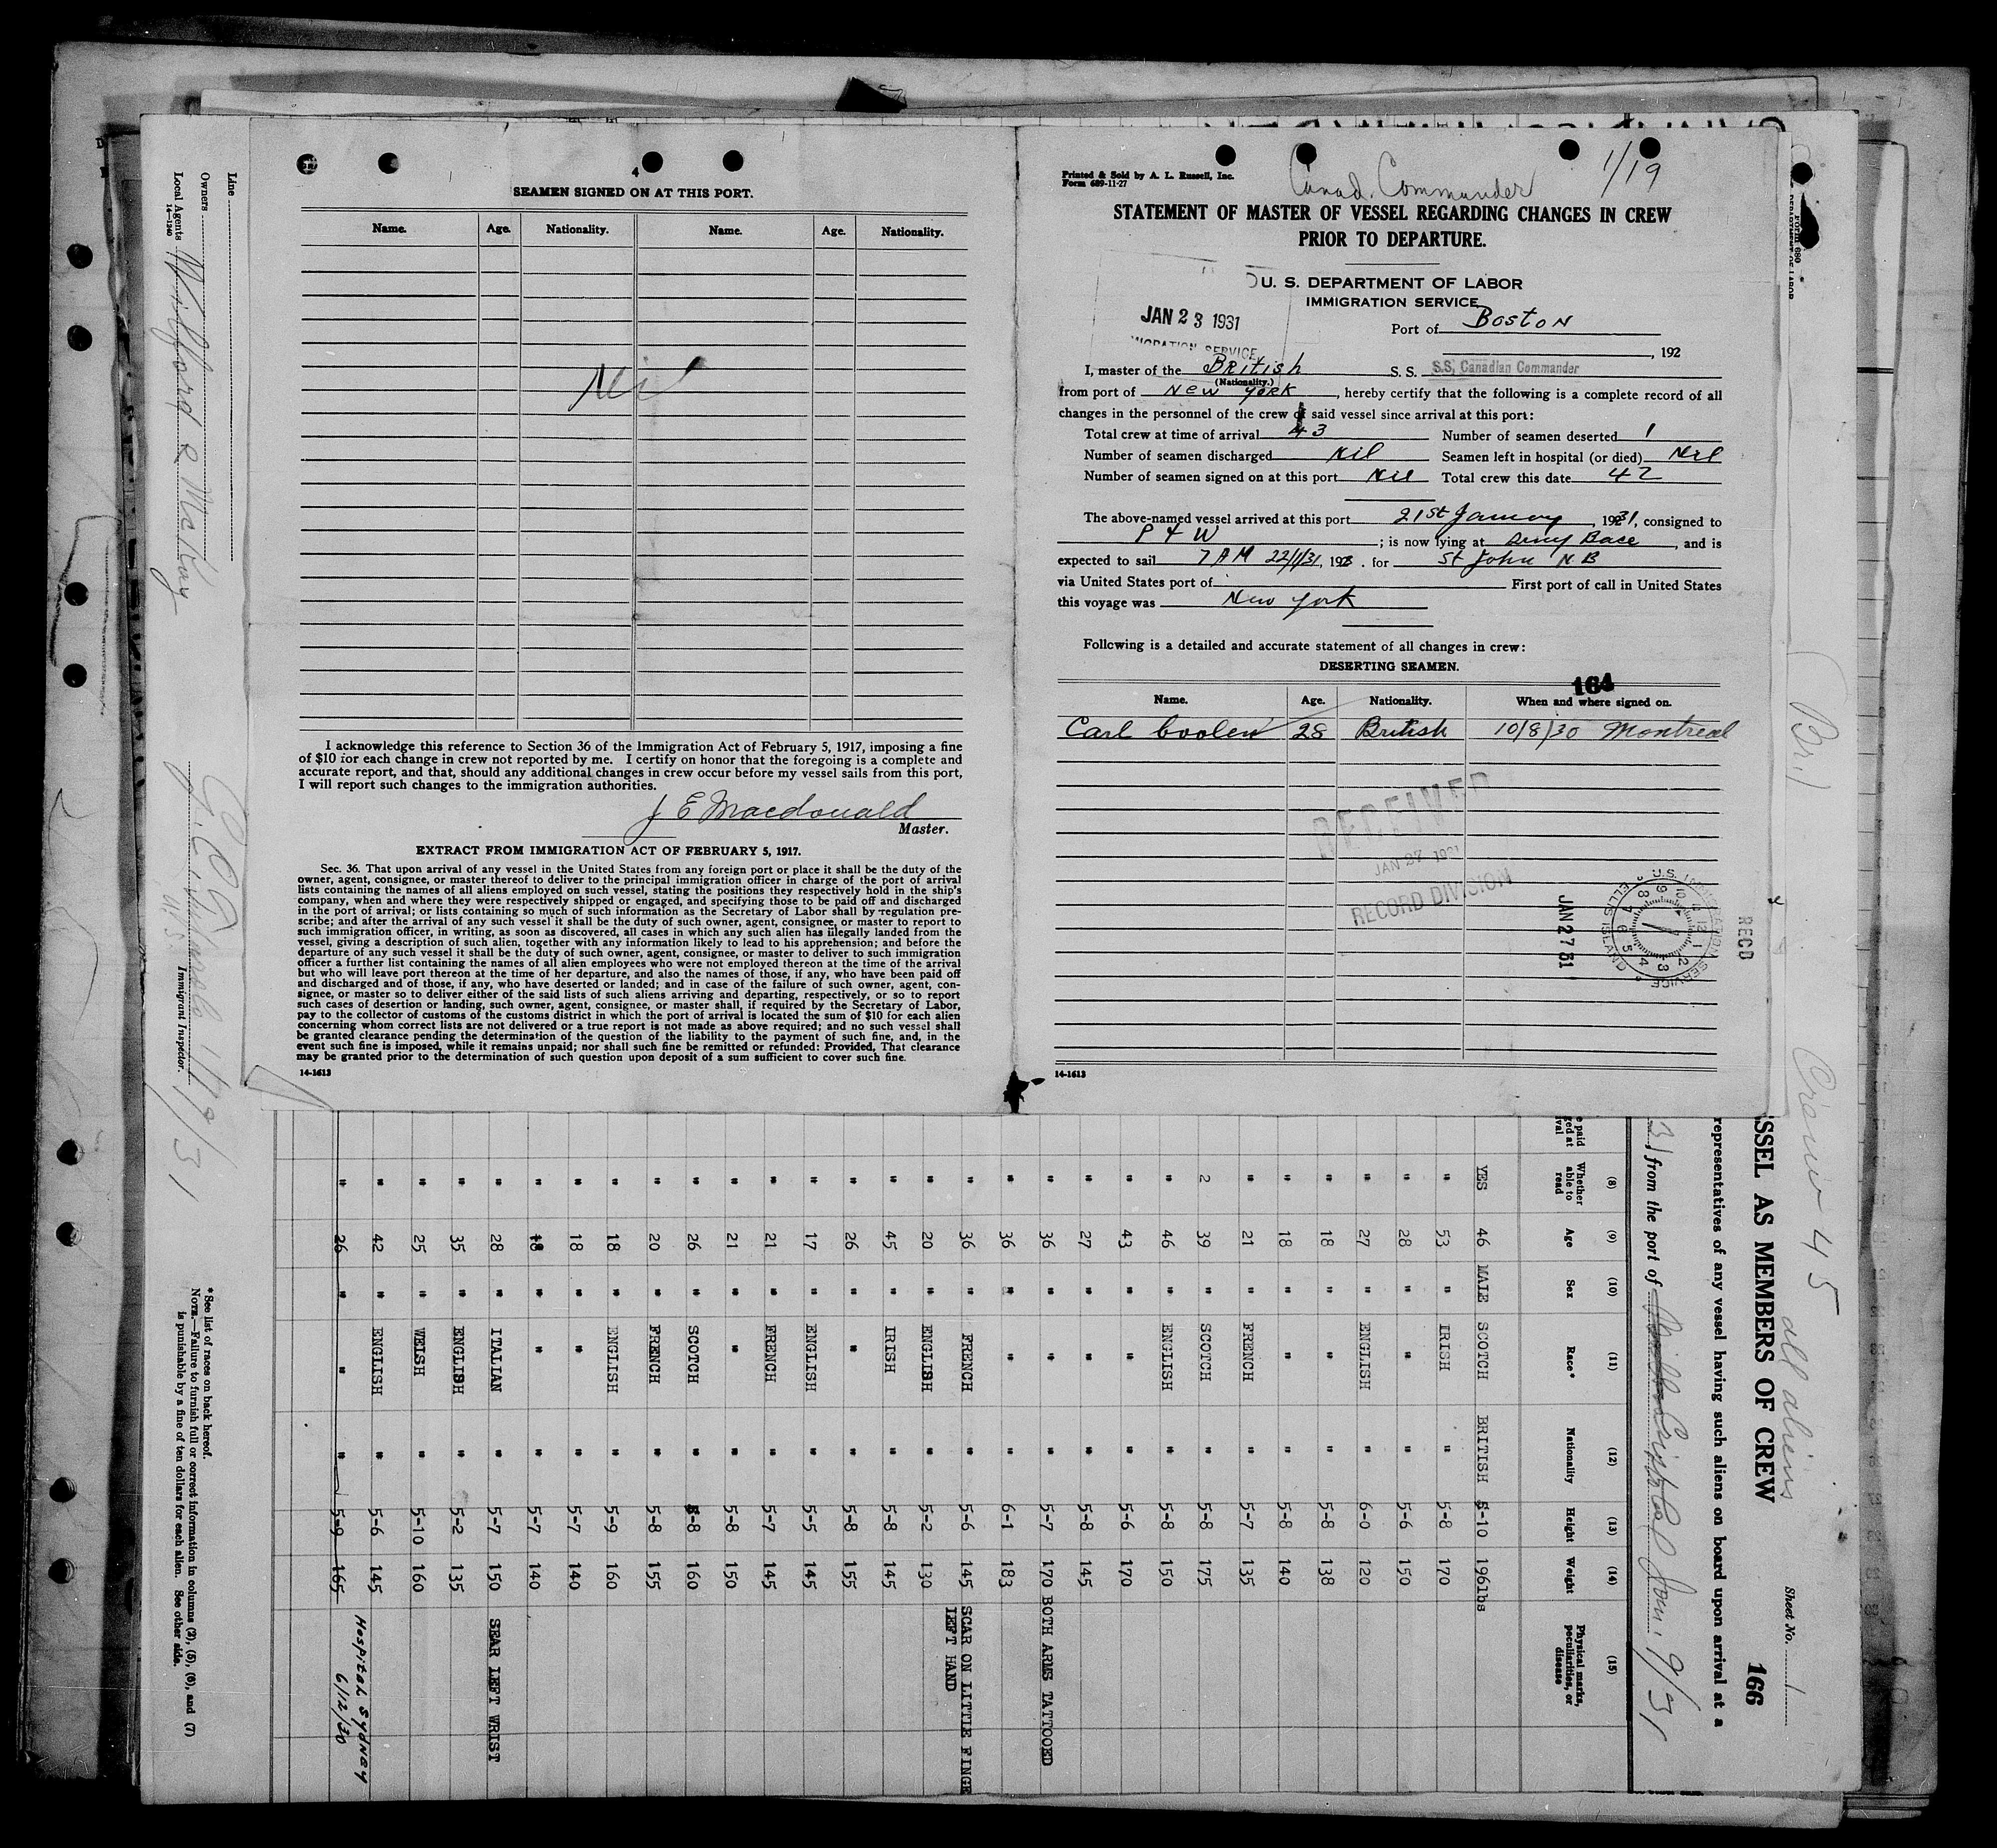 4
SEAMEN SIGNED ON AT THIS PORT.
Name. Age. Nationality. Name. Age. Nationality.
Nil
I acknowledge this reference to Section 36 of the Immigration Act of February 5, 1917, imposing a fine
of $10 for each change in crew not reported by me. I certify on honor that the foregoing is a complete and
accurate report, and that, should any additional changes in crew occur before my vessel sails from this port,
I will report such changes to the immigration authorities.
J E Macdonald
Master.
EXTRACT FROM IMMIGRATION ACT OF FEBRUARY 5, 1917.
Sec. 36. That upon arrival of any vessel in the United States from any foreign port or place it shall be the duty of the
owner, agent, consignee, or master thereof to deliver to the principal immigration officer in charge of the port of arrival
lists containing the names of all aliens employed on such vessel, stating the positions they respectively hold in the ship's
company, when and where they were respectively shipped or engaged, and specifying those to be paid off and discharged
in the port of arrival; or lists containing so much of such information as the Secretary of Labor shall by regulation pre-
scribe; and after the arrival of any such vessel it shall be the duty of such owner, agent, consignee, or master to report to
such immigration officer, in writing, as soon as discovered, all cases in which any such alien has illegally landed from the
vessel, giving a description of such alien, together with any information likely to lead to his apprehension; and before the
departure of any such vessel it shall be the duty of such owner, agent, consignee, or master to deliver to such immigration
officer a further list containing the names of all alien employees who were not employed thereon at the time of the arrival
but who will leave port thereon at the time of her departure, and also the names of those, if any, who have been paid off
and discharged and of those, if any, who have deserted or landed; and in case of the failure of such owner, agent, con-
signee, or master so to deliver either of the said lists of such aliens arriving and departing, respectively, or so to report
such cases of desertion or landing, such owner, agent, consignee, or master shall, if required by the Secretary of Labor,
pay to the collector of customs of the customs district in which the port of arrival is located the sum of $10 for each alien
concerning whom correct lists are not delivered or a true report is not made as above required; and no such vessel shall
be granted clearance pending the determination of the question of the liability to the payment of such fine, and, in the
event such fine is imposed, while it remains unpaid; nor shall such fine be remitted or refunded: Provided, That clearance
may be granted prior to the determination of such question upon deposit of a sum sufficient to cover such fine.
14-1613
Printed & Sold by A. L. Russell, Inc.
Form 689-11-27
Canad. Commander 1/19
STATEMENT OF MASTER OF VESSEL REGARDING CHANGES IN CREW
PRIOR TO DEPARTURE.
U. S. DEPARTMENT OF LABOR
IMMIGRATION SERVICE
JAN 23 1931
Port of Boston
, 192
I, master of the British S. S. S.S. Canadian Commander
(Nationality.)
from port of New York, hereby certify that the following is a complete record of all
changes in the personnel of the crew of said vessel since arrival at this port:
Total crew at time of arrival 43 Number of seamen deserted 1
Number of seamen discharged Nil Seamen left in hospital (or died) Nil
Number of seamen signed on at this port Nil Total crew this date 42
The above-named vessel arrived at this port 21st January, 1931, consigned to
P & W; is now lying at Army Base, and is
expected to sail 7 AM 22/1/31, 192 . for St John N B
via United States port of First port of call in United States
this voyage was New York
Following is a detailed and accurate statement of all changes in crew:
DESERTING SEAMEN.
164
Name. Age. Nationality. When and where signed on.
Carl Coolen 28 British 10/8/30 Montreal
RECEIVED
JAN 27 1931
RECORD DIVISION
JAN 27 31
U.S. IMMIGRATION SERVICE ELLIS ISLAND
RECD
14-1613
Line
Owners
Local Agents
14-1240
Immigrant Inspector.
* See list of races on back hereof.
NOTE.—Failure to furnish full or correct information in columns (2), (5), (6), and (7)
is punishable by a fine of ten dollars for each alien. See other side.
(Br.) Crew 45 all aliens
Sheet No. 1
SSEL AS MEMBERS OF CREW 166
representatives of any vessel having such aliens on board upon arrival at a
from the port of Jan. 9/31
(8) Whether able to read (9) Age (10) Sex (11) Race* (12) Nationality (13) Height (14) Weight (15) Physical marks, peculiarities, or disease
YES 46 MALE SCOTCH BRITISH 5-10 196lbs
" 53 " IRISH " 5-8 170
" 28 " " " 5-6 150
" 27 " ENGLISH " 6-0 120
" 18 " " " 5-8 138
" 18 " " " 5-8 140
" 21 " FRENCH " 5-7 135
2 39 " SCOTCH " 5-8 175
" 46 " ENGLISH " 5-8 150
" 43 " " " 5-6 170
" 27 " " " 5-8 145
" 36 " " " 5-7 170 BOTH ARMS TATTOOED
" 36 " " " 6-1 183
" 36 " FRENCH " 5-6 145 SCAR ON LITTLE FINGE
LEFT HAND
" 20 " ENGLISH " 5-2 130
" 45 " IRISH " 5-8 145
" 26 " " " 5-8 155
" 17 " ENGLISH " 5-5 145
" 21 " FRENCH " 5-7 145
" 21 " " " 5-8 150
" 26 " SCOTCH " 5-8 160
" 20 " FRENCH " 5-8 155
" 18 " ENGLISH " 5-9 160
" 18 " " " 5-7 140
" 18 " " " 5-7 140
" 28 " ITALIAN " 5-7 150 SEAR LEFT WRIST
" 35 " ENGLISH " 5-2 135
" 25 " WELSH " 5-10 160
" 42 " ENGLISH " 5-6 145
" 26 " " " 5-9 165 Hospital Sydney
6/12/30